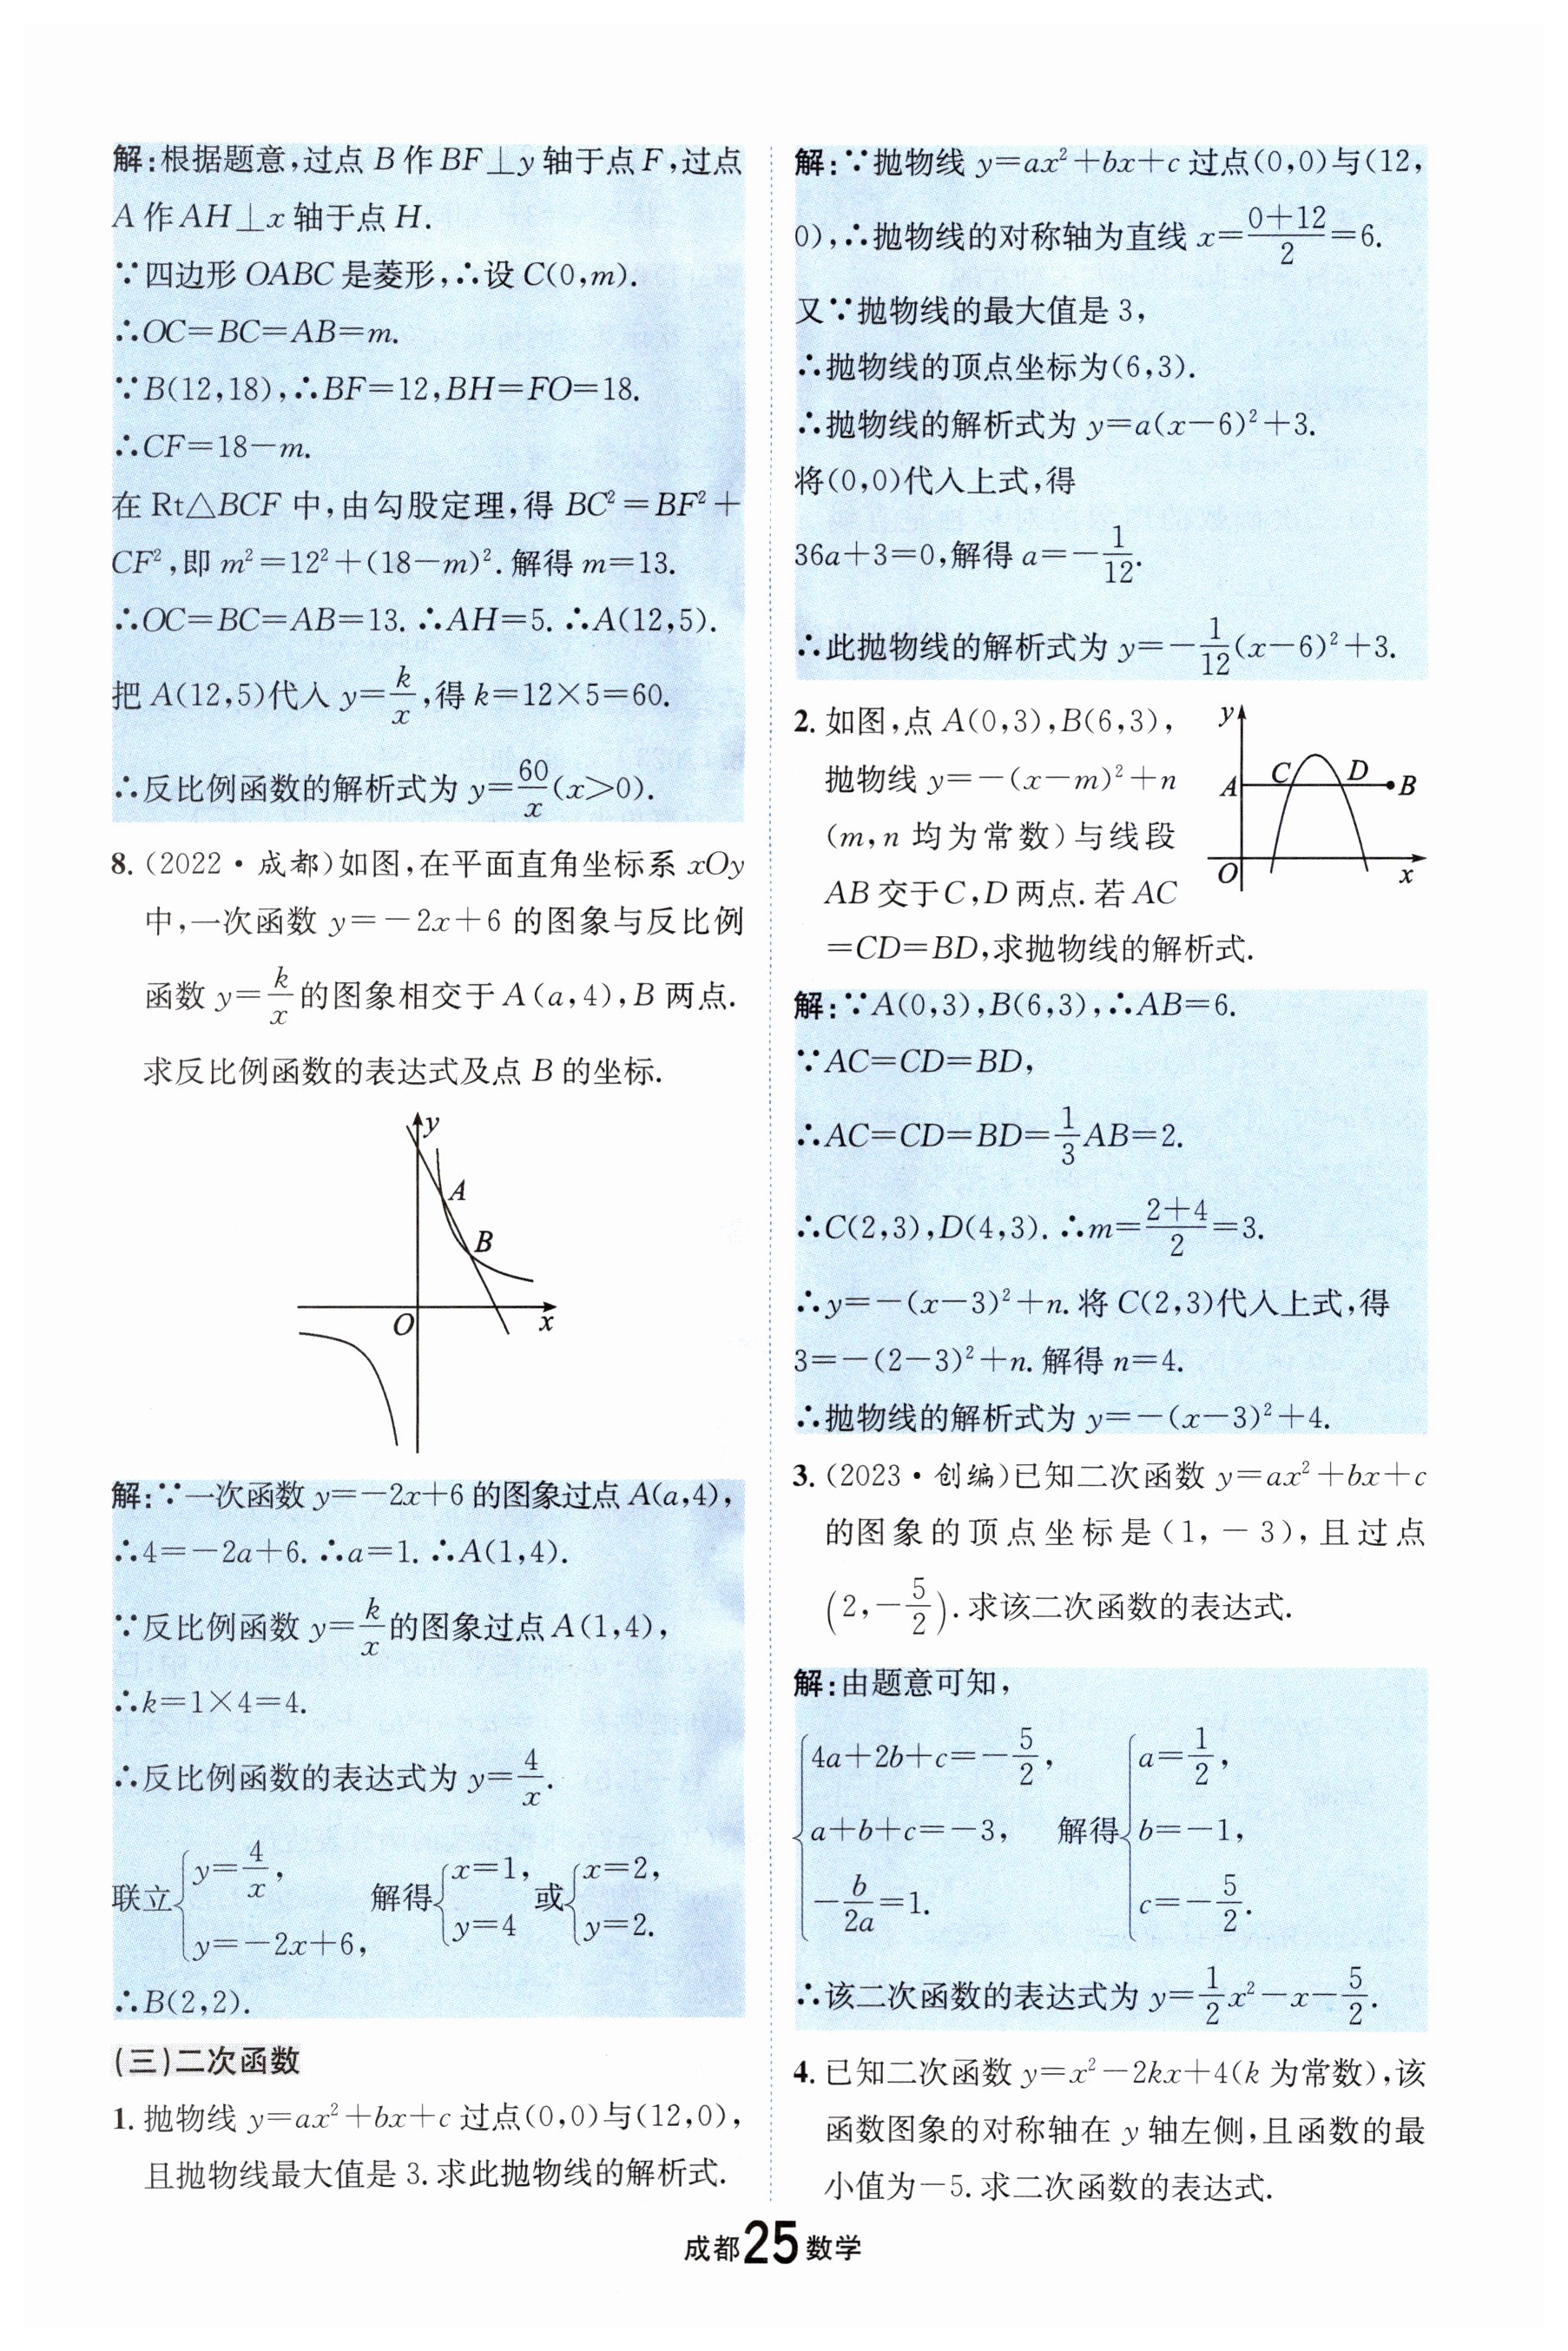 解:根据题意,过点 B 作 BF⊥y 轴于点 F,过点
A 作 AH⊥x 轴于点 H.
∵四边形 OABC 是菱形,∴设 C(0,m).
∴OC=BC=AB=m.
∵B(12,18),∴BF=12,BH=FO=18.
∴CF=18-m.
在 Rt△BCF 中,由勾股定理,得 BC²=BF²+
CF²,即 m²=12²+(18-m)².解得 m=13.
∴OC=BC=AB=13.∴AH=5.∴A(12,5).
把 A(12,5)代入 y=k/x,得 k=12×5=60.
∴反比例函数的解析式为 y=60/x(x>0).
8.(2022·成都)如图,在平面直角坐标系 xOy
中,一次函数 y=-2x+6 的图象与反比例
函数 y=k/x的图象相交于 A(a,4),B 两点.
求反比例函数的表达式及点 B 的坐标.
y
A
B
O
x
解:∵一次函数 y=-2x+6 的图象过点 A(a,4),
∴4=-2a+6.∴a=1.∴A(1,4).
∵反比例函数 y=k/x的图象过点 A(1,4),
∴k=1×4=4.
∴反比例函数的表达式为 y=4/x.
联立{y=4/x, y=-2x+6, 解得{x=1, y=4 或{x=2, y=2.
∴B(2,2).
(三)二次函数
1. 抛物线 y=ax²+bx+c 过点(0,0)与(12,0),
且抛物线最大值是 3.求此抛物线的解析式.
解:∵抛物线 y=ax²+bx+c 过点(0,0)与(12,
0),∴抛物线的对称轴为直线 x=(0+12)/2=6.
又∵抛物线的最大值是 3,
∴抛物线的顶点坐标为(6,3).
∴抛物线的解析式为 y=a(x-6)²+3.
将(0,0)代入上式,得
36a+3=0,解得 a=-1/12.
∴此抛物线的解析式为 y=-1/12(x-6)²+3.
2. 如图,点 A(0,3),B(6,3),
抛物线 y=-(x-m)²+n
(m,n 均为常数)与线段
AB 交于 C,D 两点.若 AC
=CD=BD,求抛物线的解析式.
y
C D
A B
O x
解:∵A(0,3),B(6,3),∴AB=6.
∵AC=CD=BD,
∴AC=CD=BD=1/3AB=2.
∴C(2,3),D(4,3).∴m=(2+4)/2=3.
∴y=-(x-3)²+n.将 C(2,3)代入上式,得
3=-(2-3)²+n.解得 n=4.
∴抛物线的解析式为 y=-(x-3)²+4.
3.(2023·创编)已知二次函数 y=ax²+bx+c
的图象的顶点坐标是(1,-3),且过点
(2,-5/2).求该二次函数的表达式.
解:由题意可知,
{4a+2b+c=-5/2, a+b+c=-3, -b/2a=1. 解得{a=1/2, b=-1, c=-5/2.
∴该二次函数的表达式为 y=1/2x²-x-5/2.
4. 已知二次函数 y=x²-2kx+4(k 为常数),该
函数图象的对称轴在 y 轴左侧,且函数的最
小值为-5.求二次函数的表达式.
成都25数学